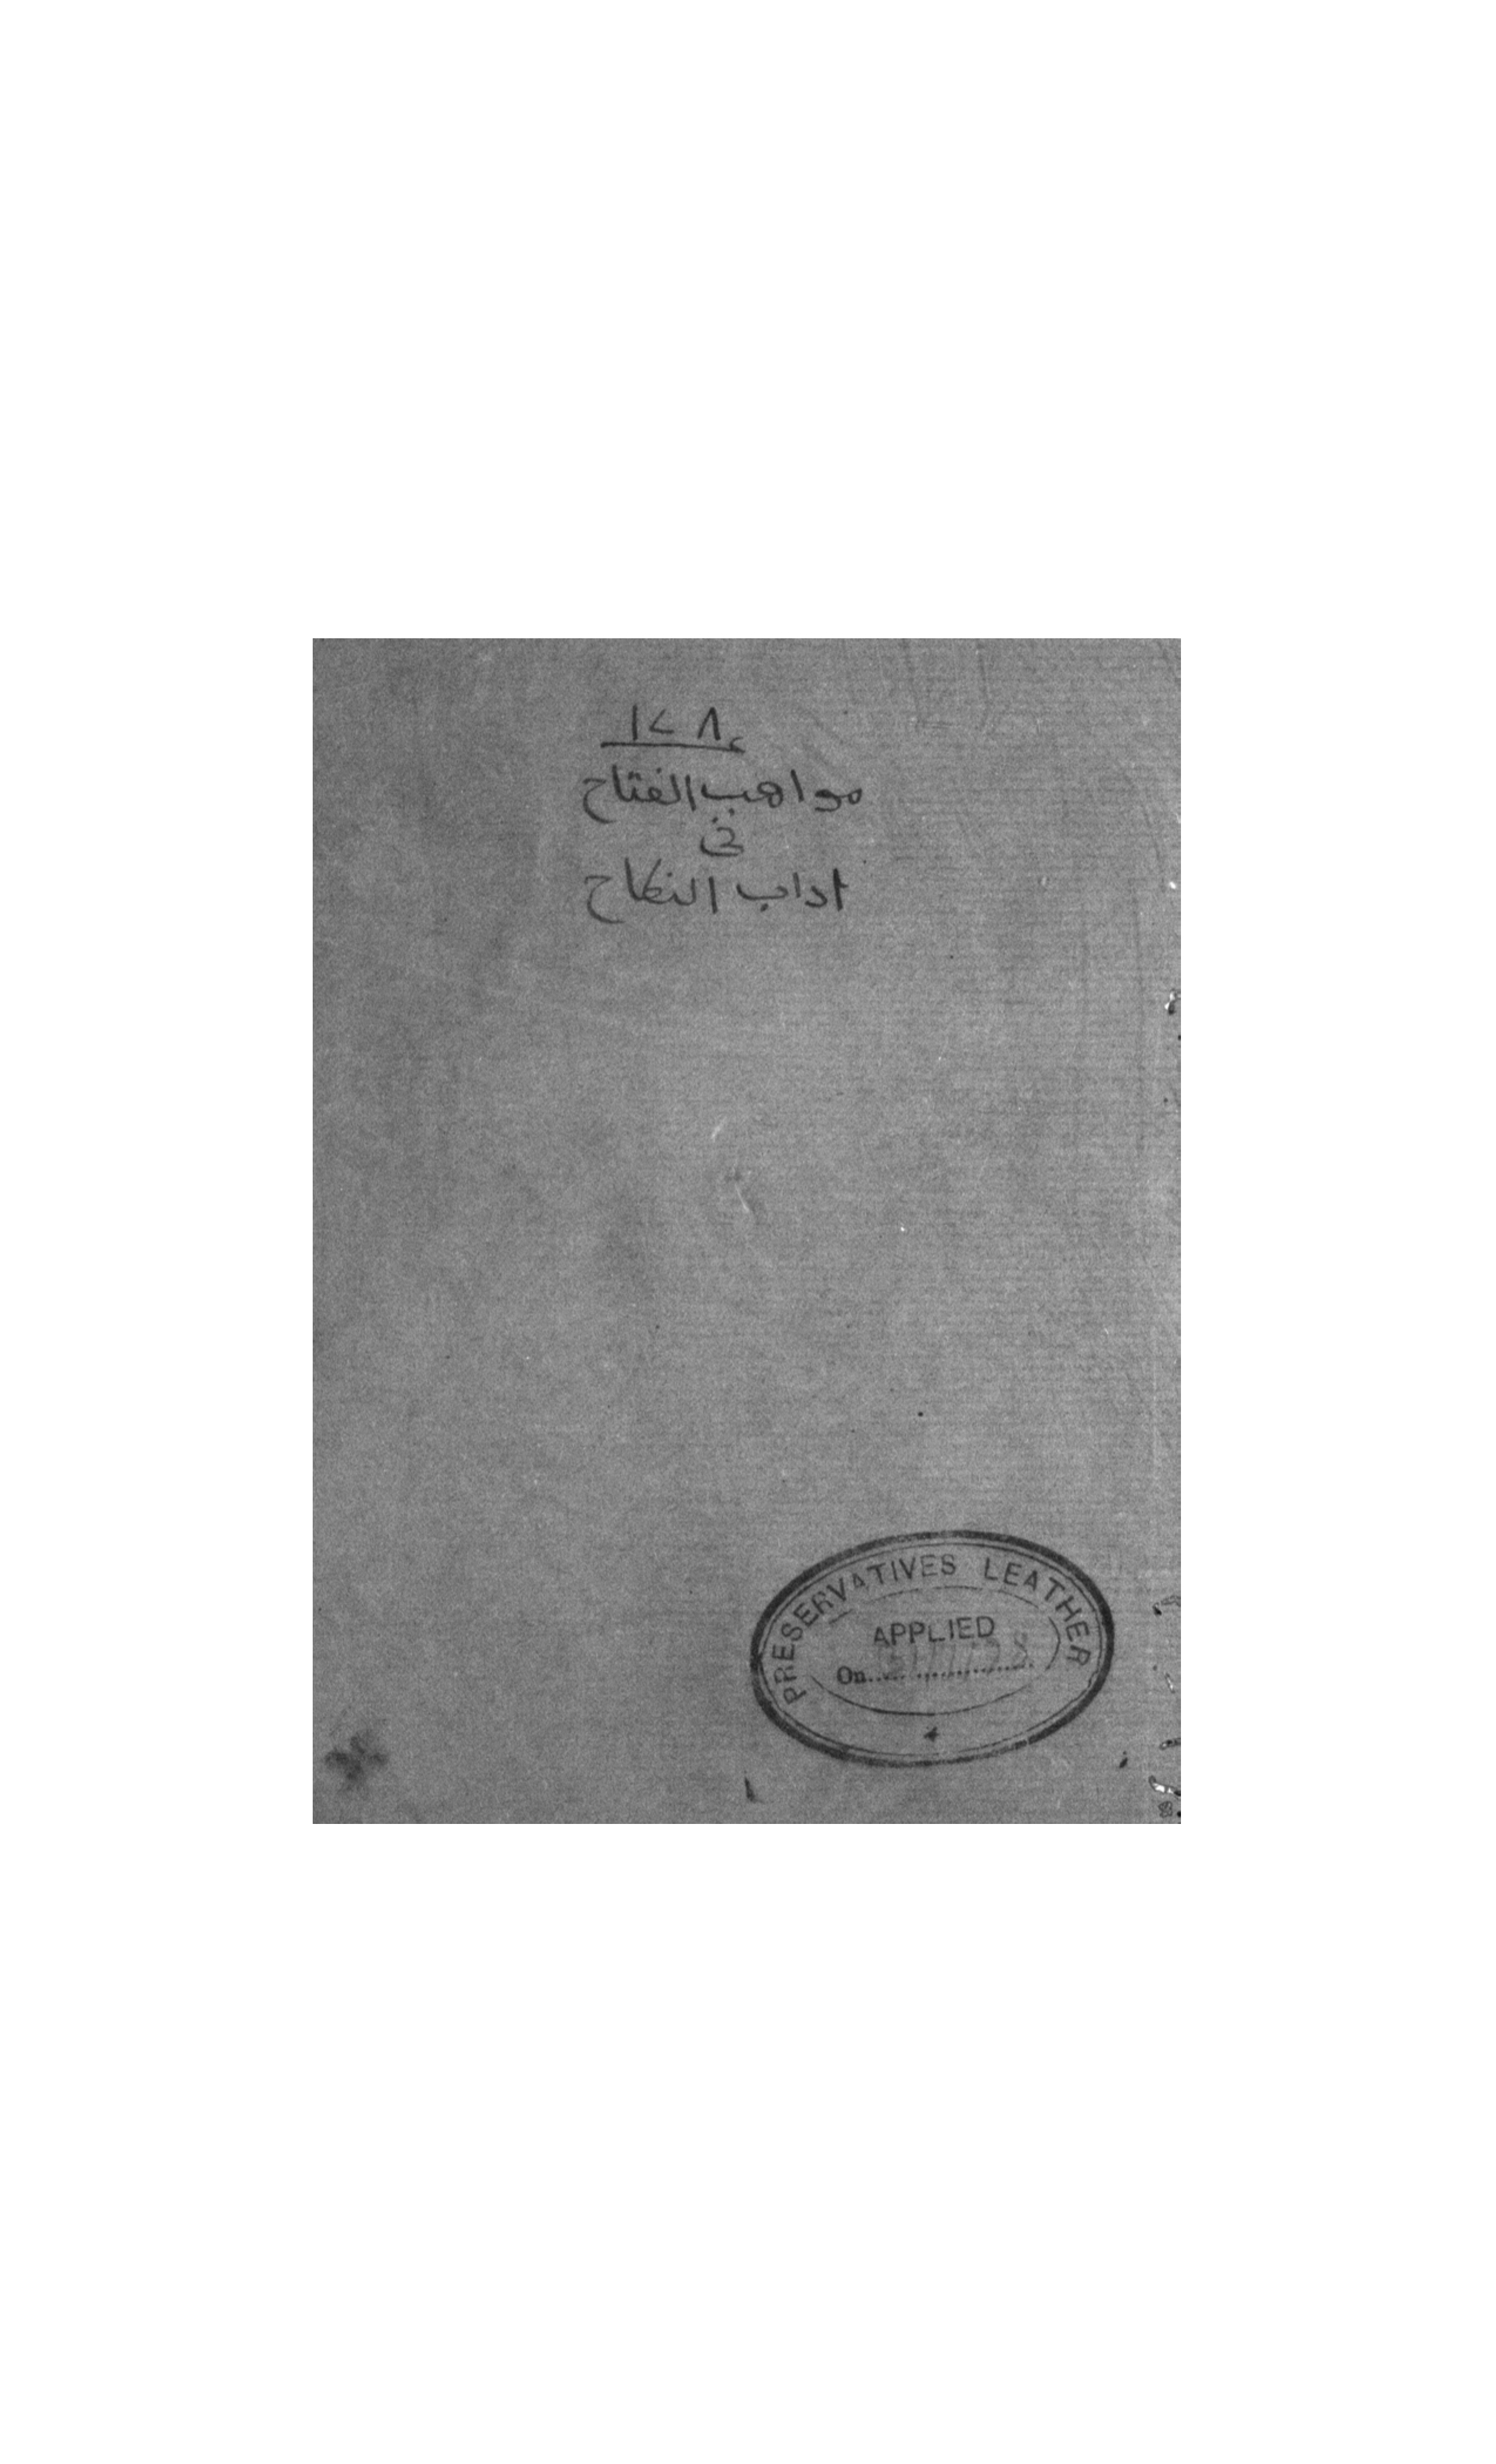 ١٢٨
مواهب الفتاح
في
اداب النكاح
PRESERVATIVES LEATHER
APPLIED
On